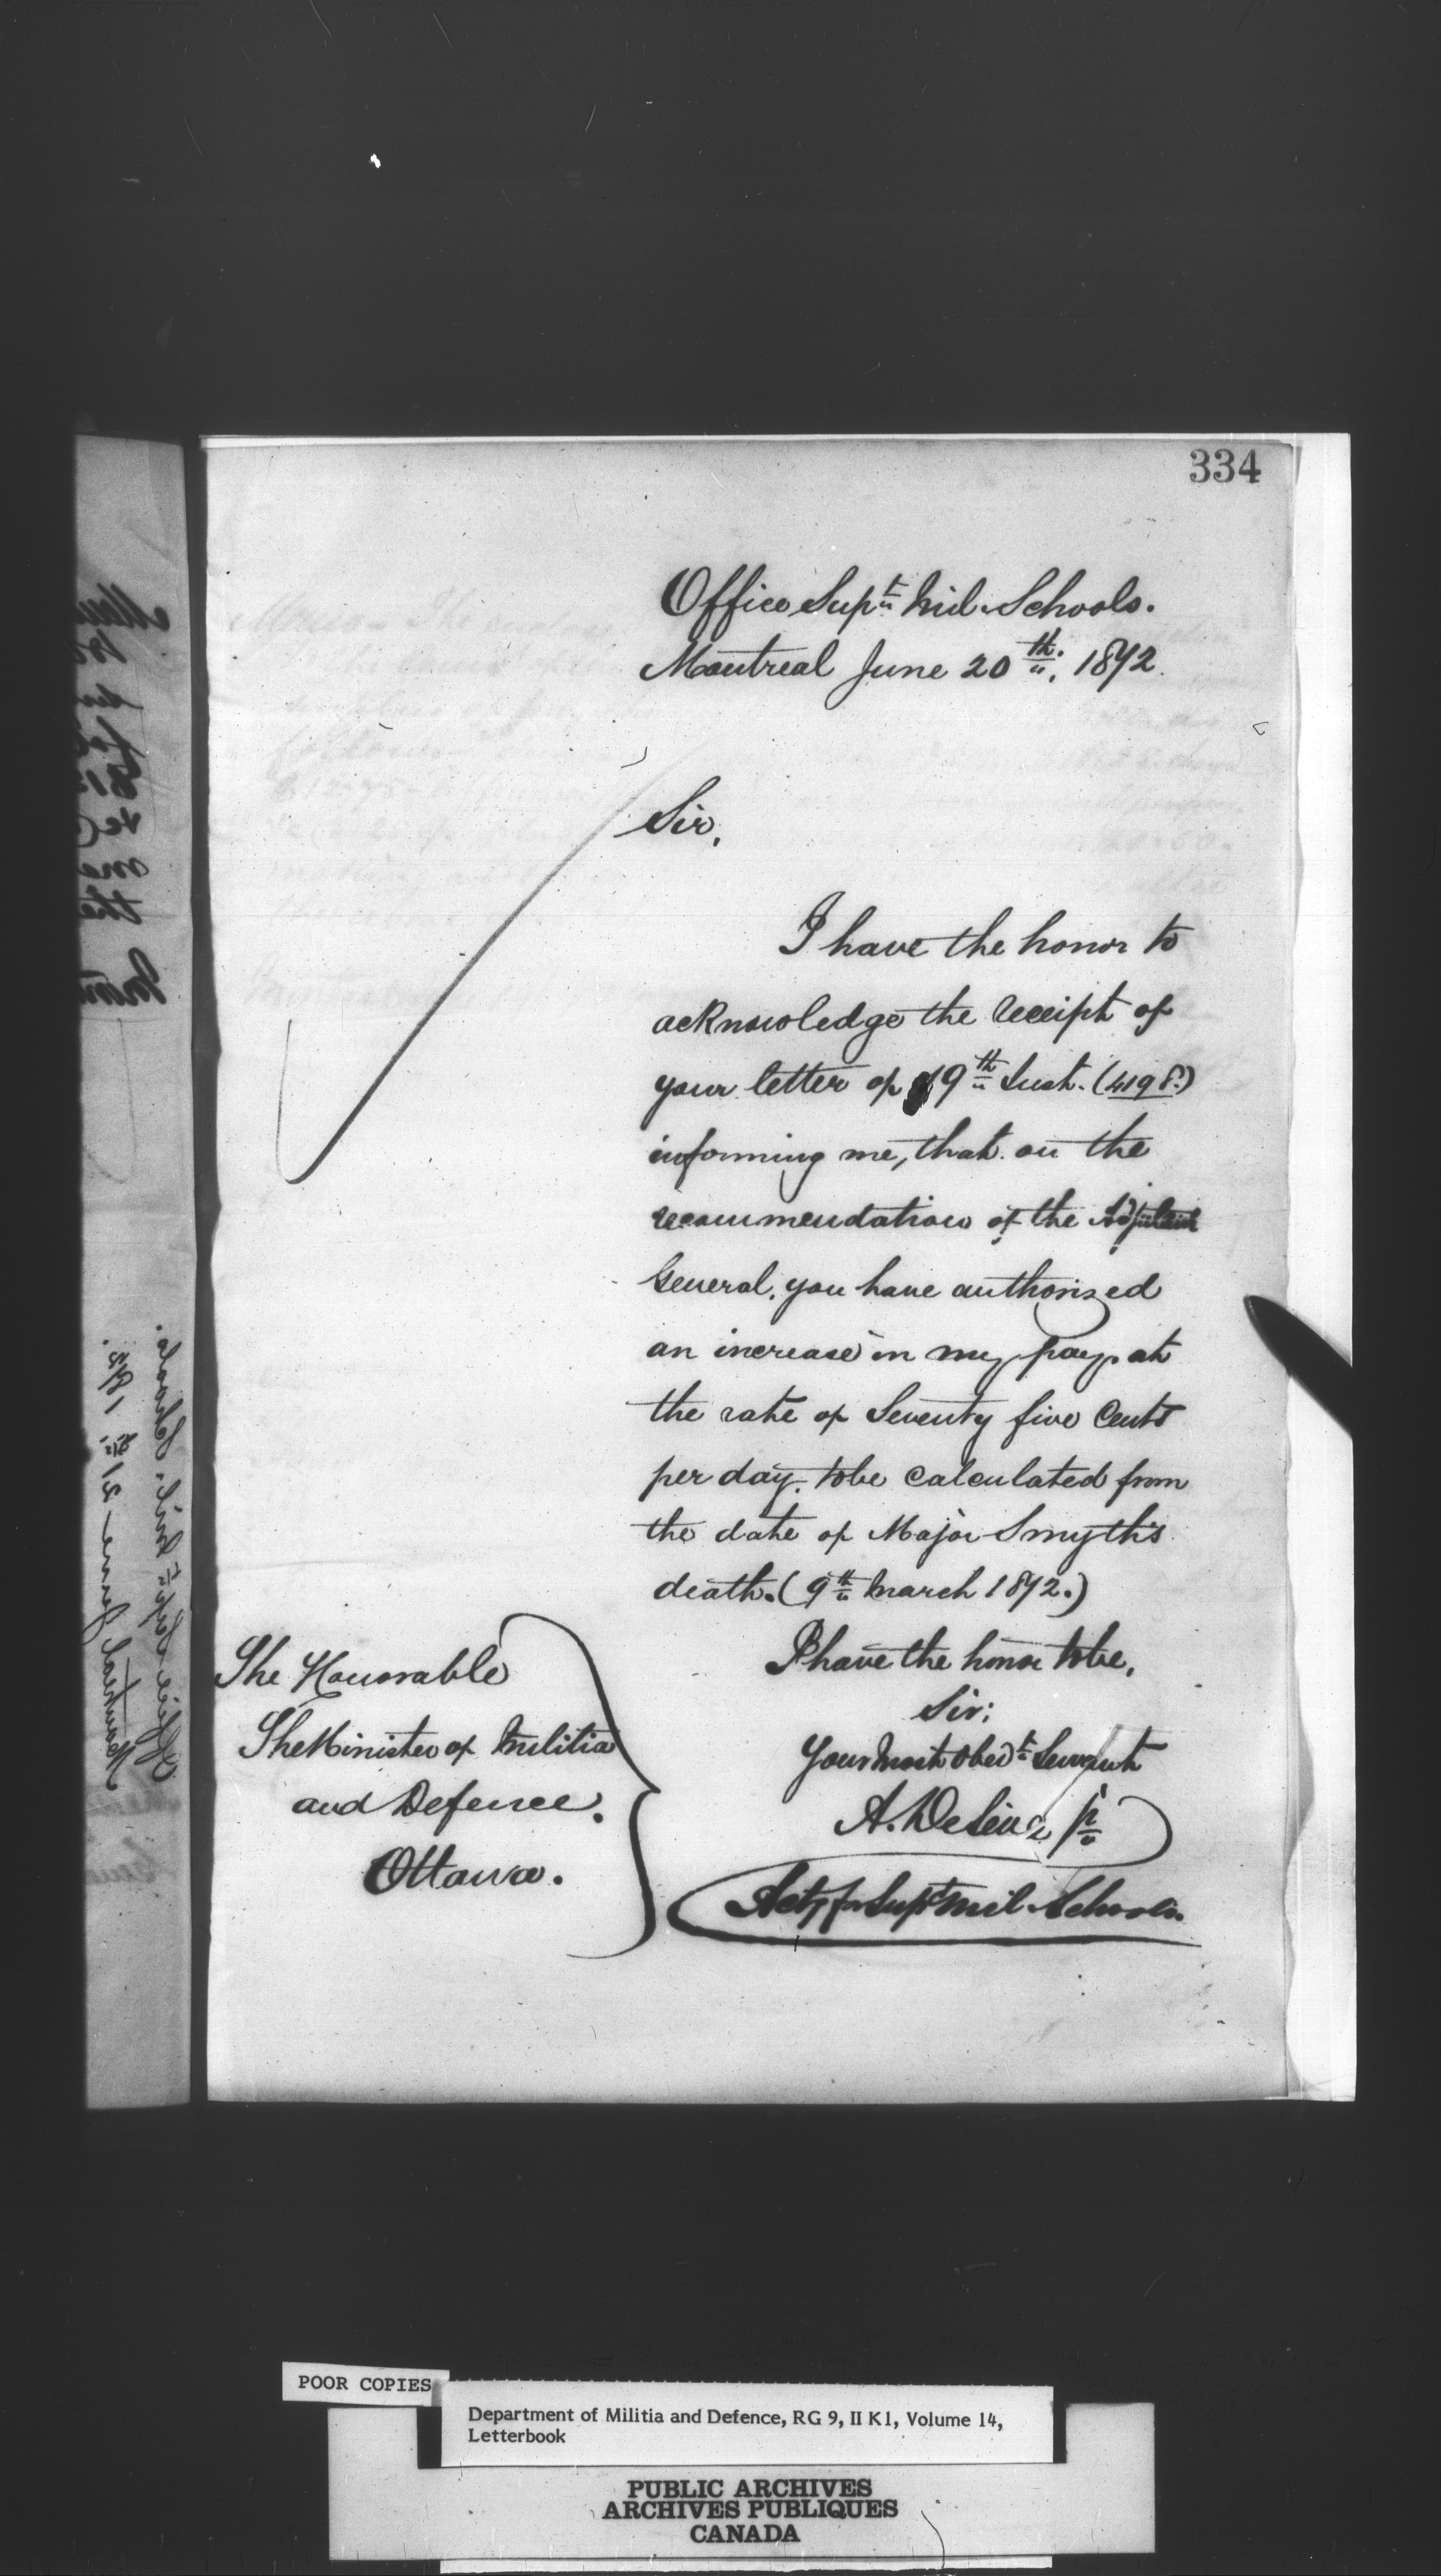 334
Office Supt. Mil. Schools.
Montreal June 20th. 1872.
Sir,
I have the honor to
acknowledge the receipt of
your letter of 19th Inst. (4198.)
informing me, that on the
recommendation of the Adjutant
General, you have authorized
an increase in my pay, at
the rate of Seventy five Cents
per day. to be Calculated from
the date of Major Smyth's
death. (9th March 1872.)
I have the honor to be,
Sir;
Your Most Obedt Servant
A. De
Actg for Supt Mil. Schools.
The Honorable
The Minister of Militia
and Defence.
Ottawa.
Office Supt Mil. Schools.
Montreal June 21st 1872.
the
POOR COPIES
Department of Militia and Defence, RG 9, II K1, Volume 14,
Letterbook
PUBLIC ARCHIVES
ARCHIVES PUBLIQUES
CANADA